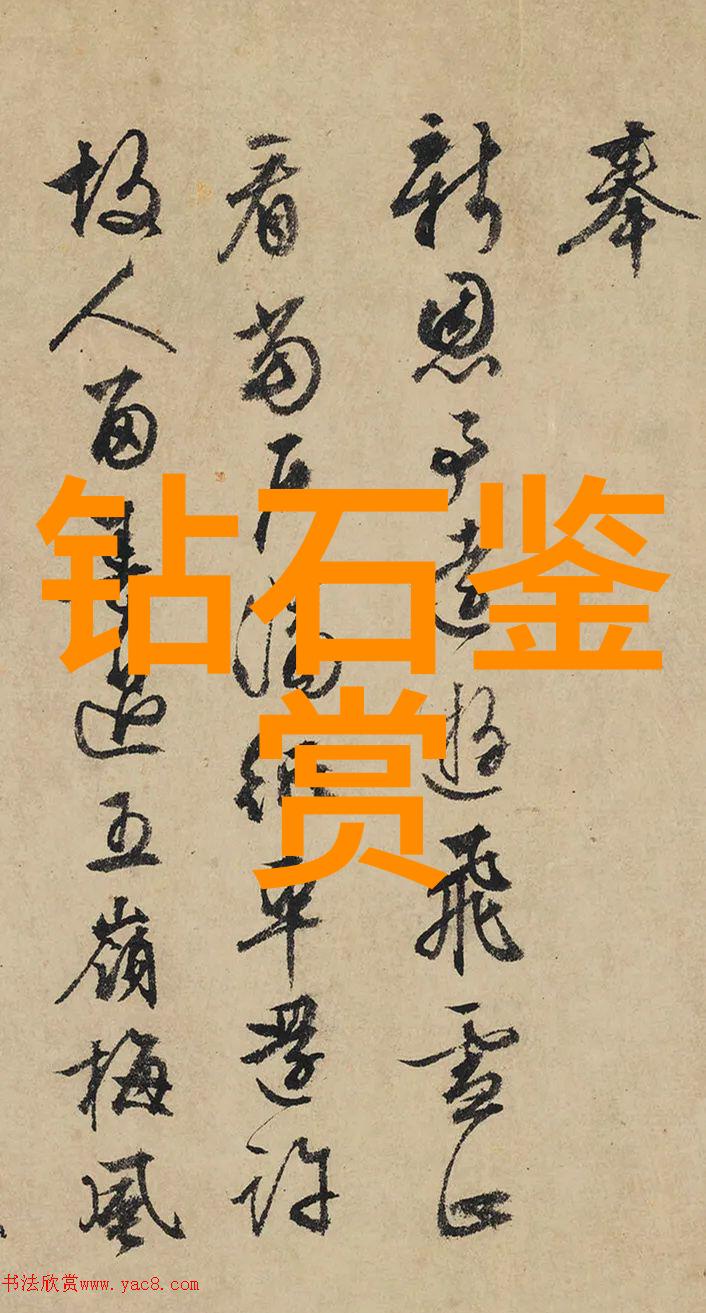 奉
新恩遠遊飛雪正
看還許
故人留五嶺梅風
钻石鉴
赏
书法欣赏www.yac8.com